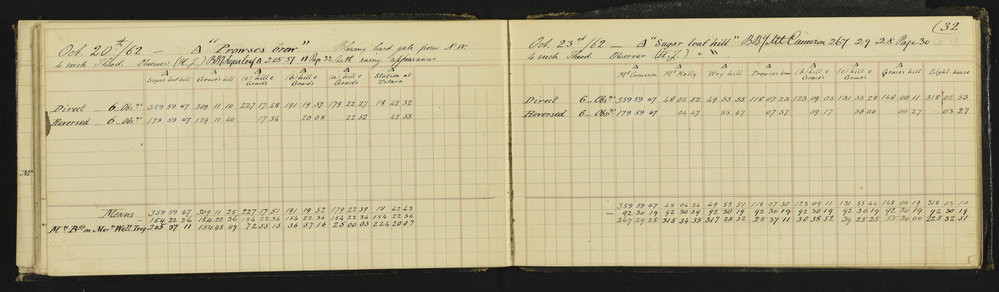 Oct. 20th /62 — △ "Prowses brow" Blowing hard gale from N.W.
4 inch Theod. Observer (H.J.) 205 37 11 Page 32 with rainy appearance
△ Sugar loaf hill △ Graces hill △ (c) hill c Graces △ (b) hill c Graces △ (a) hill c Graces Station at
Direct 6 – Obsns 359 59 47 309 11 10 227 17 48 191 19 37 179 22 27 18 42 32
Reversed 6 – Obsns 179 59 47 129 11 40 17 54 20 08 22 52 42 55
Means 359 59 47 309 11 25 227 17 51 191 19 52 179 22 39 18 42 43
– 154 22 36 154 22 36 154 22 36 154 22 36 154 22 36 154 22 36
Mn Bg on Mern Well. Trig 205 37 11 154 48 49 72 55 15 36 57 16 25 00 03 224 20 07
32
Oct. 23rd /62 — △ "Sugar loaf hill" Mt Cameron 267 29 28 Page 30
4 inch Theod. Observer (H.J.) " "
△ Mt Cameron △ Mt Kelly △ Way hill △ Prowses brow △ (b) hill c Graces △ (c) hill c Graces △ Graces hill △ Light house
Direct 6 – Obsns 359 59 47 48 05 12 49 55 55 118 07 23 123 09 05 131 55 28 148 00 11 318 02 53
Reversed 6 – Obsns 179 59 47 04 47 55 47 07 37 09 17 56 00 00 27 03 27
359 59 07 48 04 54 49 55 51 118 07 30 123 09 11 131 55 44 148 00 19 318 03 10
– 92 30 19 92 30 19 92 30 19 92 30 19 92 30 19 92 30 19 92 30 19 92 30 19
267 29 28 315 34 35 317 25 32 25 37 11 30 38 52 39 25 25 55 30 00 225 32 51